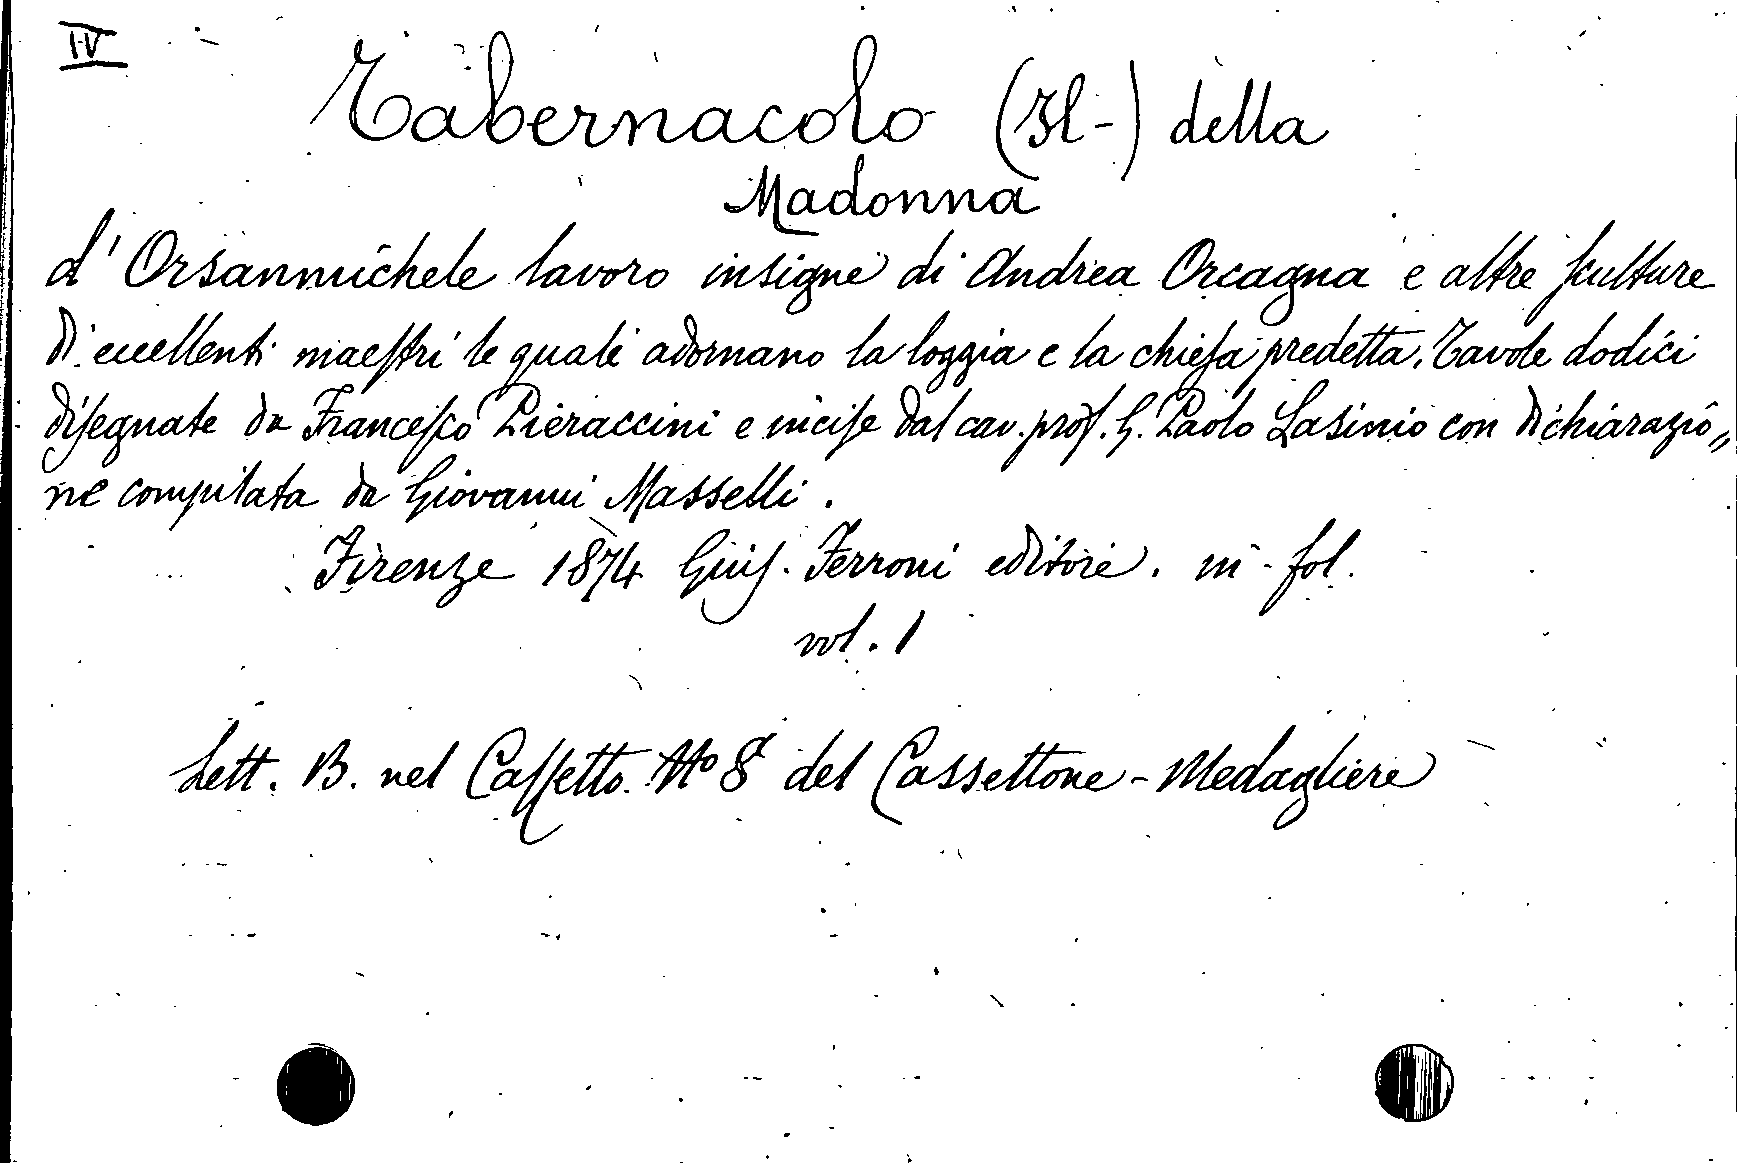 IV
Tabernacolo (Il-) della
Madonna
d'Orsanmichele lavoro insigne di Andrea Orcagna e altre sculture
di eccellenti maestri le quali adornano la loggia e la chiesa predetta. Tavole dodici
disegnate da Francesco Pieraccini e incise dal cav. prof. G. Paolo Lasinio con dichiarazio„
ne compilata da Giovanni Masselli.
Firenze 1874 Gius. Ferroni editore. in-fol.
vol. 1
Lett. B. nel Cassetto No 8 del Cassettone-Medagliere